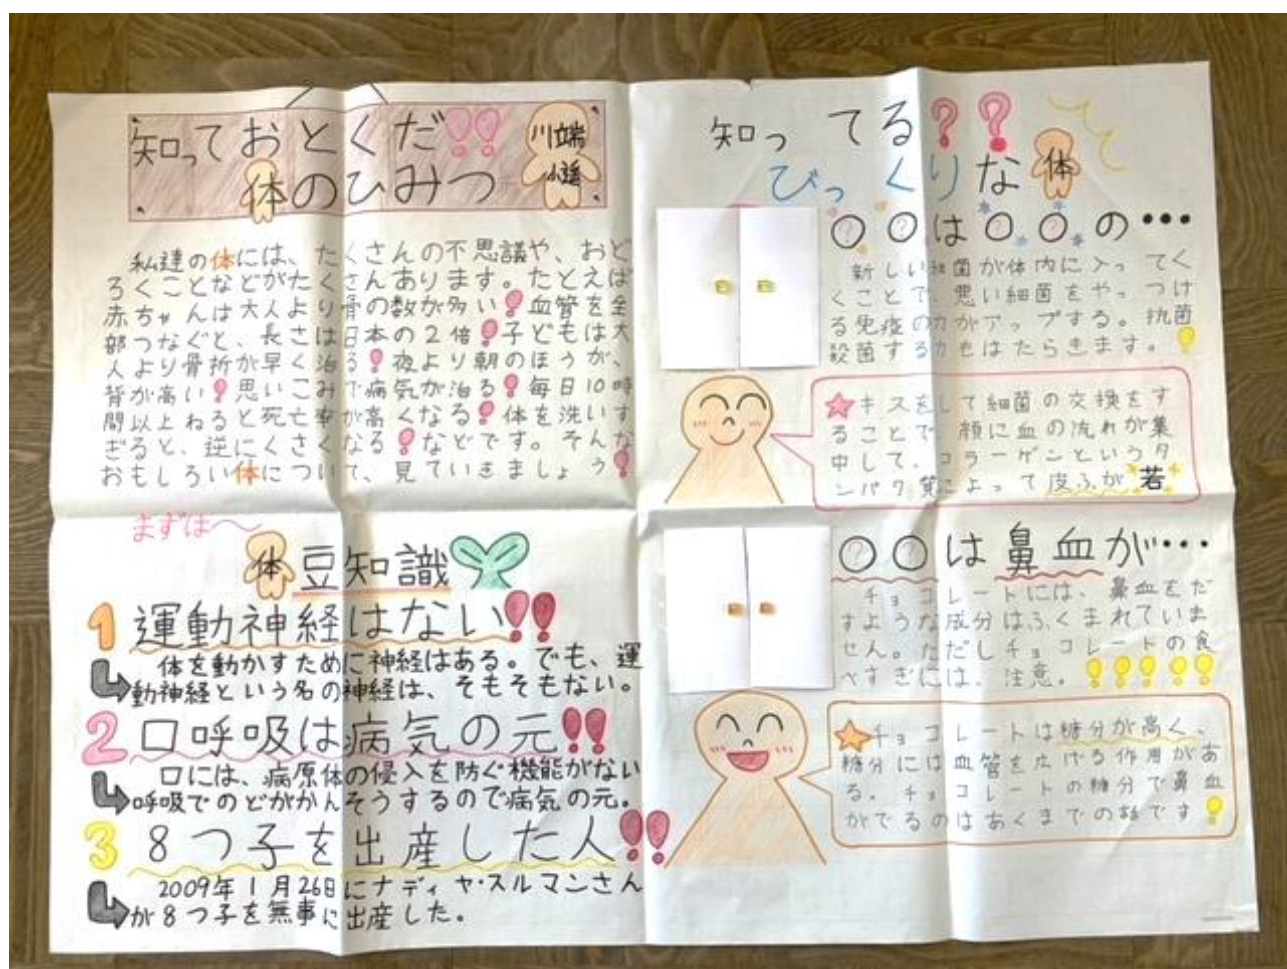 知っておとくだ!!
体のひみつ
川端
小遥
私達の体には、たくさんの不思議や、おど
ろくことなどがたくさんあります。たとえば
赤ちゃんは大人より骨の数が多い!血管を全
部つなぐと、長さは日本の2倍!子どもは大
人より骨折が早く治る!夜より朝のほうが、
背が高い!思いこみで病気が治る!毎日10時
間以上ねると死亡率が高くなる!体を洗いす
ぎると、逆にくさくなる!などです。そんな
おもしろい体について、見ていきましょう!
まずは〜
体豆知識
1 運動神経はない!!
体を動かすために神経はある。でも、運
動神経という名の神経は、そもそもない。
2 口呼吸は病気の元!!
口には、病原体の侵入を防ぐ機能がない
呼吸でのどがかんそうするので病気の元。
3 8つ子を出産した人!!
2009年1月26日にナディヤ・スルマンさん
が8つ子を無事に出産した。
知ってる??
びっくりな体
〇〇は〇〇の・・・
新しい細菌が体内に入ってく
くことで、悪い細菌をやっつけ
る免疫の力がアップする。抗菌
殺菌する力もはたらきます。!
☆キスをして細菌の交換をす
ることで、顔に血の流れが集
中して、コラーゲンというタ
ンパク質によって皮ふが若
〇〇は鼻血が・・・
チョコレートには、鼻血をだ
すような成分はふくまれていま
せん。ただしチョコレートの食
べすぎには、注意。!!!!!
☆チョコレートは糖分が高く、
糖分には血管を広げる作用があ
る。チョコレートの糖分で鼻血
がでるのはあくまでの話です!